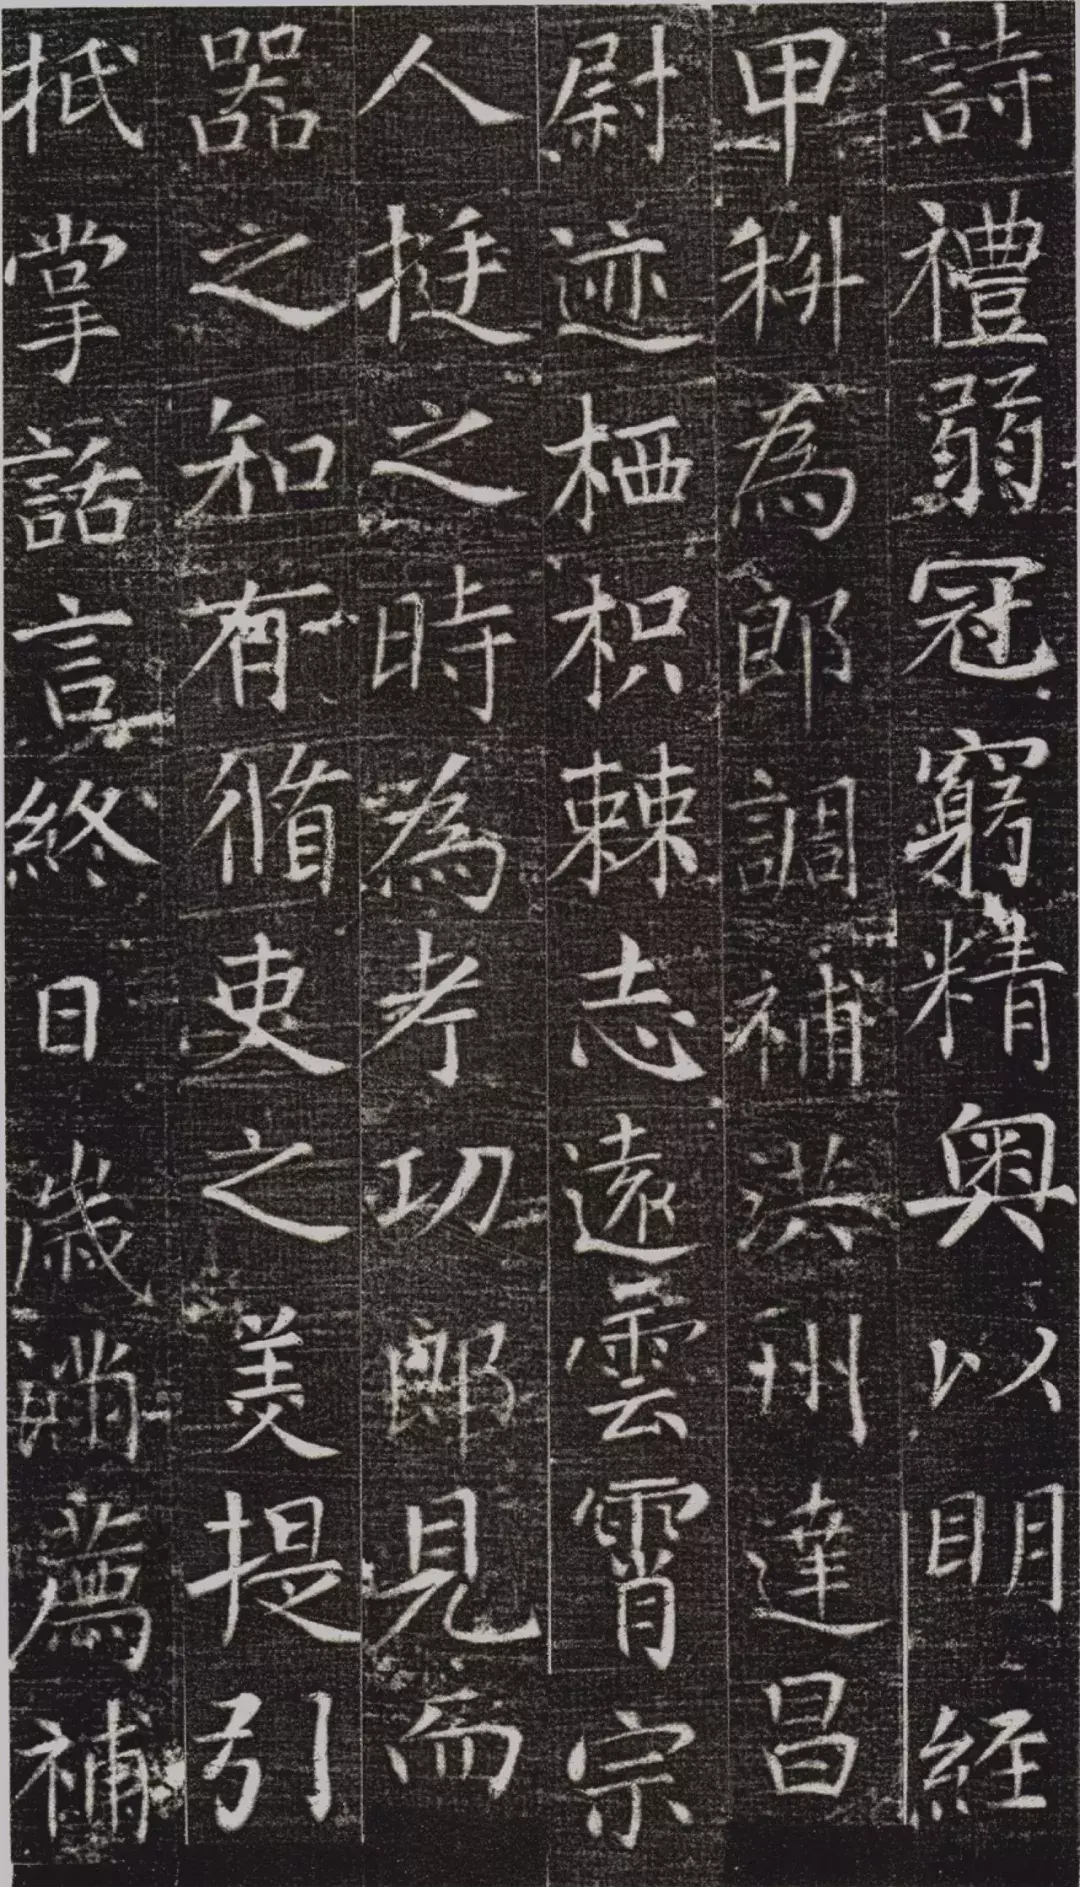 詩禮弱冠窮精奧以明經
甲科為郎調補洪州建昌
尉迹栖枳棘志遠雲霄宗
人挺之時為考功郎見而
器之知有脩吏之美提引
抵掌話言終日歲滿薦補